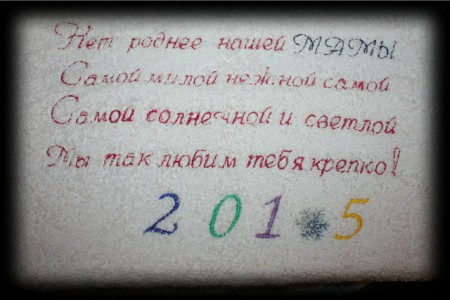 Нет роднее нашей МАМЫ
Самой милой нежной самой
Самой солнечной и светлой
Мы так любим тебя крепко!
201*5